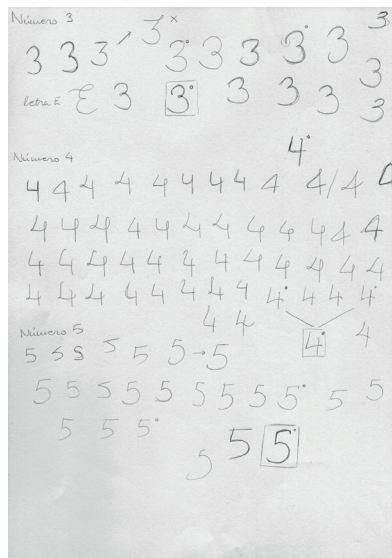 Número 3
3 3 3 3 3° 3 3 3° 3 3
letra E E 3 3° 3 3 3 3 3
4°
Número 4
4 4 4 4 4 4 4 4 4 4/4 4
4 4 4 4 4 4 4 4 4 4 4 4 4
4 4 4 4 4 4 4 4 4 4 4 4 4
4 4 4 4 4 4 4 4 4° 4 4 4°
4 4 4° 4
Número 5
5 5 5 5 5 5→5
5 5 5 5 5 5 5 5 5 5° 5 5
5 5 5°
5 5 5°